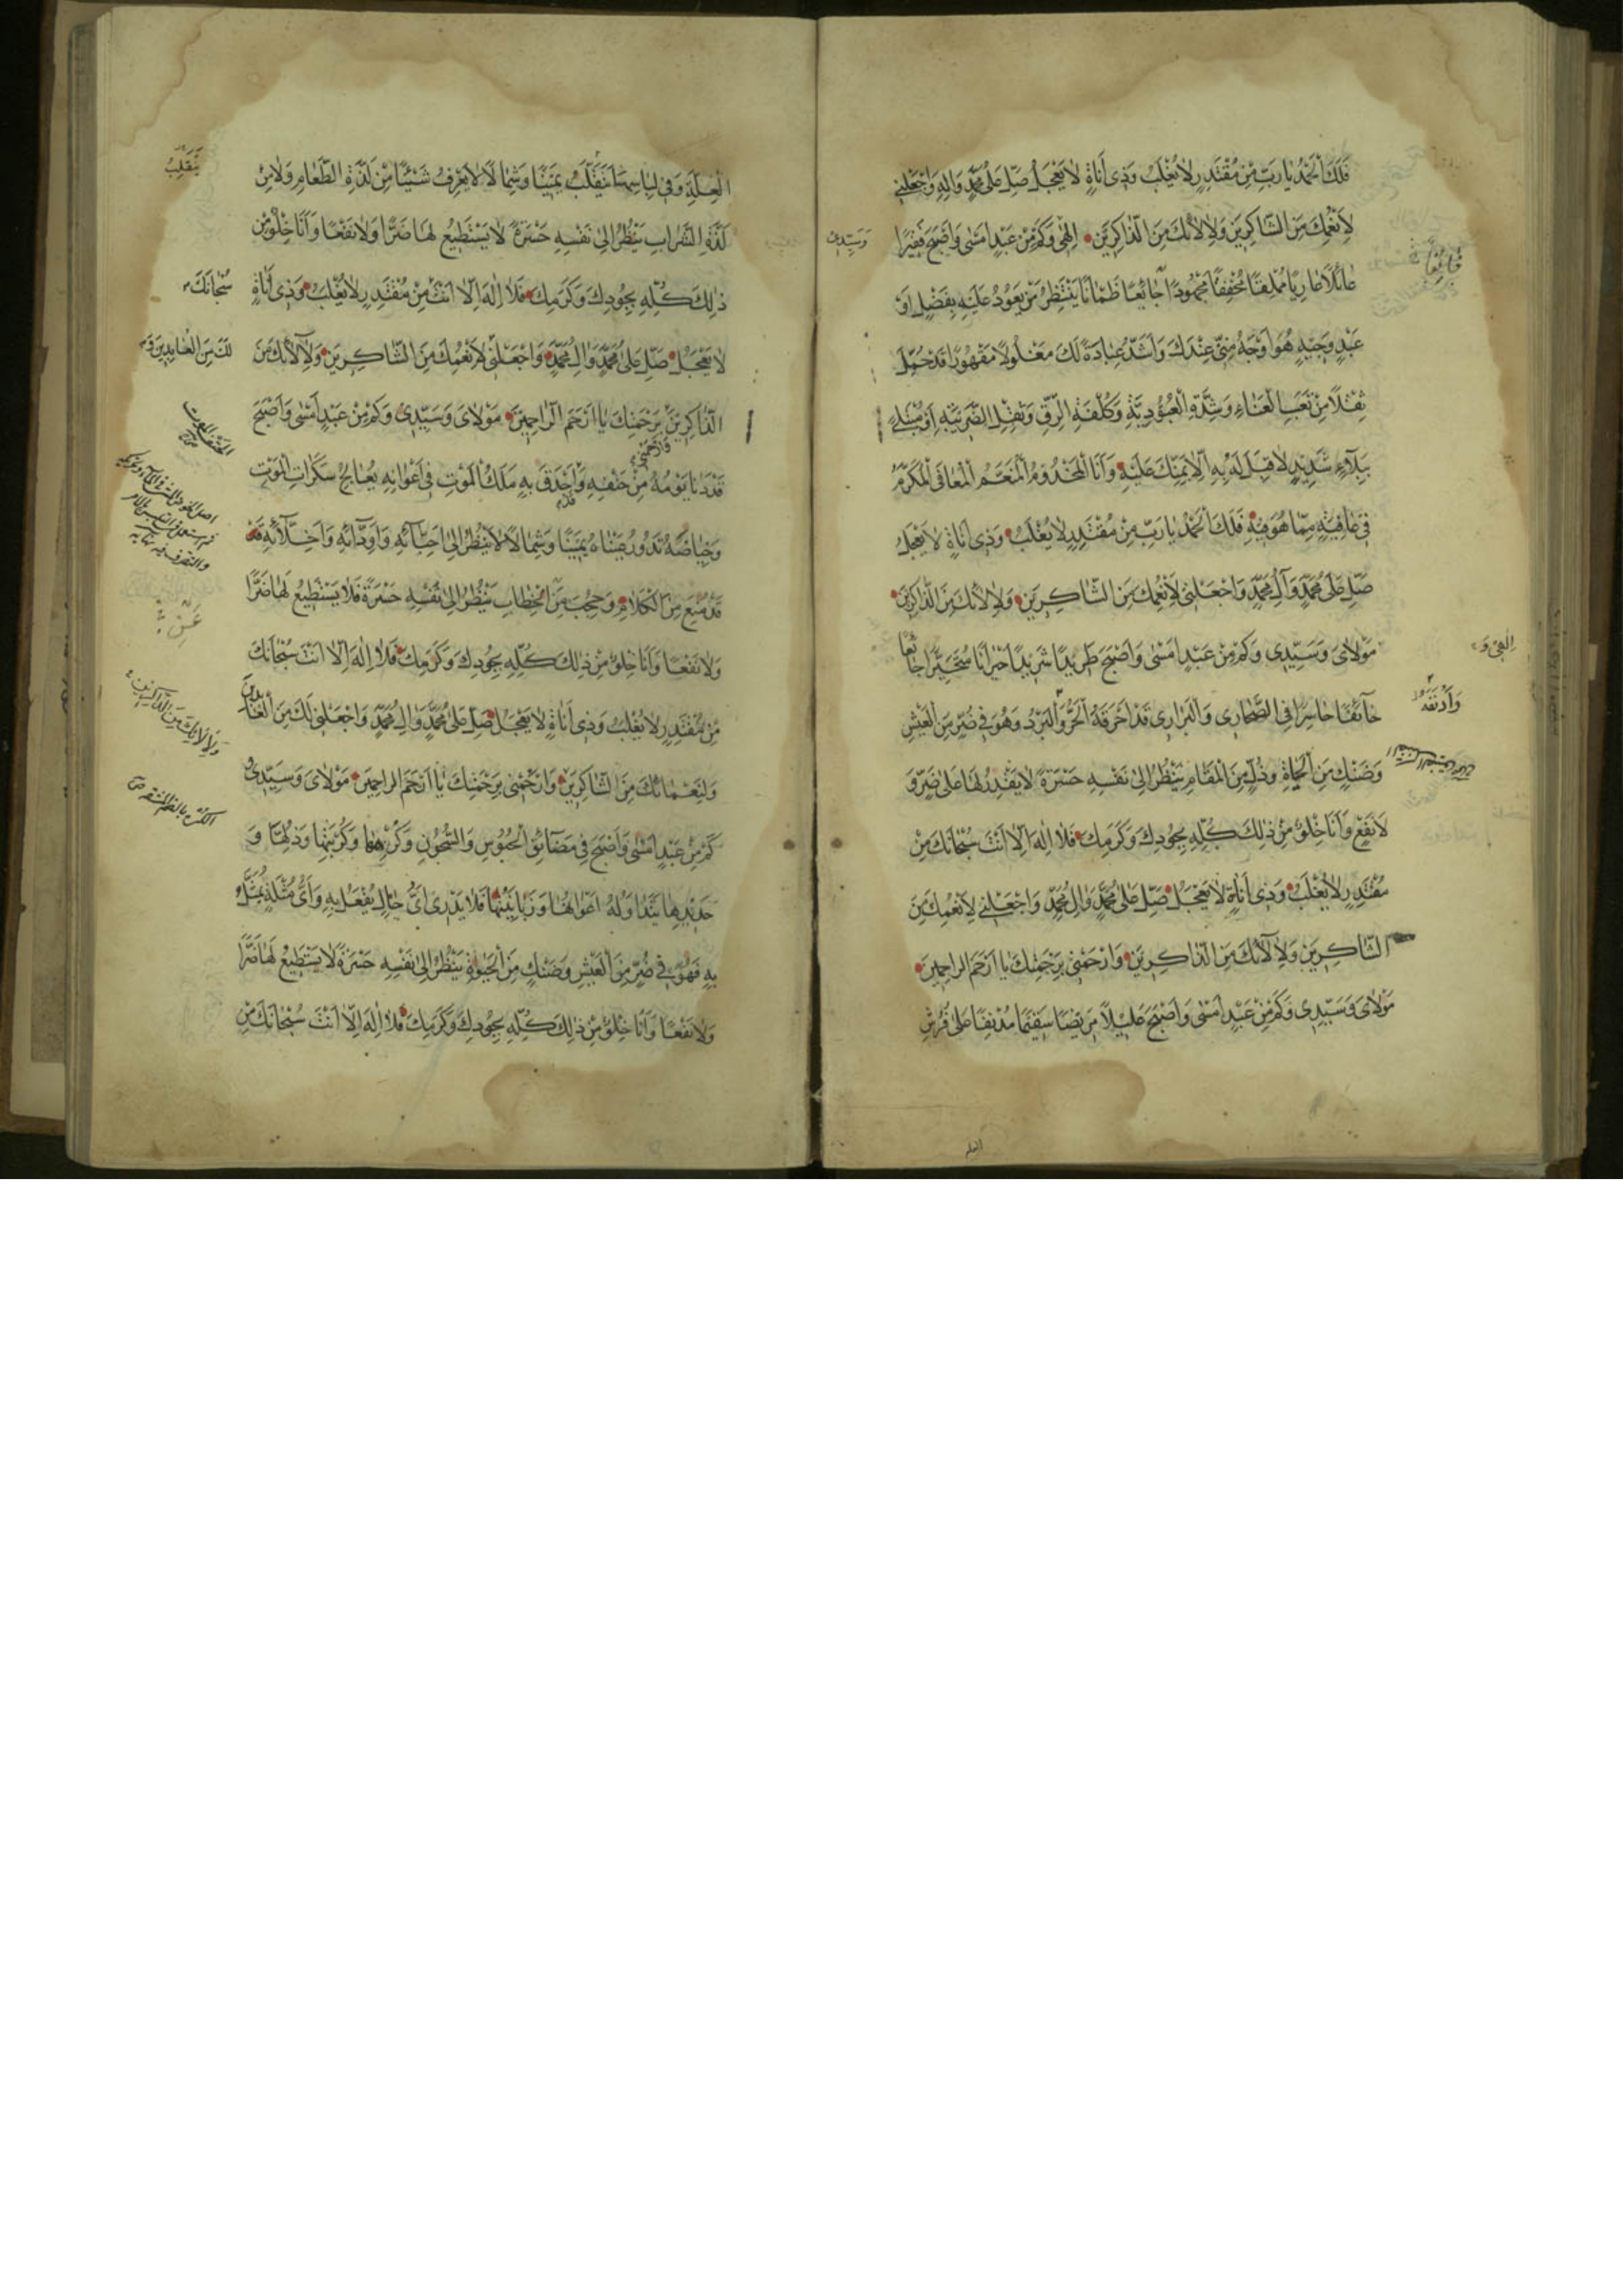 فَلَكَ الْحَمْدُ يَا رَبِّ مِنْ مُقْتَدِرٍ لَا يُغْلَبُ وَذِي أَنَاةٍ لَا يَعْجَلُ صَلِّ عَلَى مُحَمَّدٍ وَآلِهِ وَاجْعَلْنِي
لِأَنْعُمِكَ مِنَ الشَّاكِرِينَ وَلِآلَائِكَ مِنَ الذَّاكِرِينَ إِلٰهِي وَكَمْ مِنْ عَبْدٍ أَمْسَى وَأَصْبَحَ فَقِيرًا
وَسَيِّدِي
عَائِلًا عَارِيًا مُمْلِقًا مُخْفِقًا مَجْهُودًا جَائِعًا ظَمْآنًا يَنْتَظِرُ مَنْ يَعُودُ عَلَيْهِ بِفَضْلٍ أَوْ
عَبْدٍ وَجِيهٍ هُوَ أَوْجَهُ مِنِّي عِنْدَكَ وَأَشَدُّ عِبَادَةً لَكَ مَغْلُولًا مَقْهُورًا قَدْ حُمِّلَ
ثِقْلًا مِنْ تَعَبِ الْعَنَاءِ وَشِدَّةِ الْعُبُودِيَّةِ وَكُلْفَةِ الرِّقِّ وَثِقْلِ الضَّرِيبَةِ أَوْ مُبْتَلًى
بِبَلَاءٍ شَدِيدٍ لَا قِبَلَ لَهُ بِهِ إِلَّا بِمَنِّكَ عَلَيْهِ وَأَنَا الْمَخْدُومُ الْمُنَعَّمُ الْمُعَافَى الْمُكَرَّمُ
فِي عَافِيَةٍ مِمَّا هُوَ فِيهِ فَلَكَ الْحَمْدُ يَا رَبِّ مِنْ مُقْتَدِرٍ لَا يُغْلَبُ وَذِي أَنَاةٍ لَا يَعْجَلُ
صَلِّ عَلَى مُحَمَّدٍ وَآلِ مُحَمَّدٍ وَاجْعَلْنِي لِأَنْعُمِكَ مِنَ الشَّاكِرِينَ وَلِآلَائِكَ مِنَ الذَّاكِرِينَ
إِلٰهِي وَ
مَوْلَايَ وَسَيِّدِي وَكَمْ مِنْ عَبْدٍ أَمْسَى وَأَصْبَحَ طَرِيدًا شَرِيدًا حَيْرَانًا مُتَحَيِّرًا جَائِعًا
خَائِفًا حَاسِرًا فِي الصَّحَارِي وَالْبَرَارِي قَدْ أَحْرَقَهُ الْحَرُّ وَالْبَرْدُ وَهُوَ فِي ضُرٍّ مِنَ الْعَيْشِ
وَضَنْكٍ مِنَ الْحَيَاةِ وَذُلٍّ مِنَ الْمَقَامِ يَنْظُرُ إِلَى نَفْسِهِ حَسْرَةً لَا يَقْدِرُ لَهَا عَلَى ضَرٍّ وَ
لَا نَفْعٍ وَأَنَا خِلْوٌ مِنْ ذٰلِكَ كُلِّهِ بِجُودِكَ وَكَرَمِكَ فَلَا إِلٰهَ إِلَّا أَنْتَ سُبْحَانَكَ مِنْ
مُقْتَدِرٍ لَا يُغْلَبُ وَذِي أَنَاةٍ لَا يَعْجَلُ صَلِّ عَلَى مُحَمَّدٍ وَآلِ مُحَمَّدٍ وَاجْعَلْنِي لِأَنْعُمِكَ مِنَ
الشَّاكِرِينَ وَلِآلَائِكَ مِنَ الذَّاكِرِينَ وَارْحَمْنِي بِرَحْمَتِكَ يَا أَرْحَمَ الرَّاحِمِينَ
مَوْلَايَ وَسَيِّدِي وَكَمْ مِنْ عَبْدٍ أَمْسَى وَأَصْبَحَ عَلِيلًا مَرِيضًا سَقِيمًا مُدْنِفًا عَلَى فُرُشِ
العلة
الْعِلَّةِ وَفِي لِبَاسِهَا يَتَقَلَّبُ يَمِينًا وَشِمَالًا لَا يَعْرِفُ شَيْئًا مِنْ لَذَّةِ الطَّعَامِ وَلَا مِنْ
يَتَقَلَّبُ
لَذَّةِ الشَّرَابِ يَنْظُرُ إِلَى نَفْسِهِ حَسْرَةً لَا يَسْتَطِيعُ لَهَا ضَرًّا وَلَا نَفْعًا وَأَنَا خِلْوٌ مِنْ
ذٰلِكَ كُلِّهِ بِجُودِكَ وَكَرَمِكَ فَلَا إِلٰهَ إِلَّا أَنْتَ مِنْ مُقْتَدِرٍ لَا يُغْلَبُ وَذِي أَنَاةٍ
سُبْحَانَكَ
لَا يَعْجَلُ صَلِّ عَلَى مُحَمَّدٍ وَآلِ مُحَمَّدٍ وَاجْعَلْنِي لِأَنْعُمِكَ مِنَ الشَّاكِرِينَ وَلِآلَائِكَ مِنَ
لَكَ مِنَ الْعَابِدِينَ وَ
الذَّاكِرِينَ بِرَحْمَتِكَ يَا أَرْحَمَ الرَّاحِمِينَ مَوْلَايَ وَسَيِّدِي وَكَمْ مِنْ عَبْدٍ أَمْسَى وَأَصْبَحَ
وَارْحَمْنِي
قَدْ دَنَا يَوْمُهُ مِنْ حَتْفِهِ وَأَحْدَقَ بِهِ مَلَكُ الْمَوْتِ فِي أَعْوَانِهِ يُعَالِجُ سَكَرَاتِ الْمَوْتِ
الحتف الموت
وَحِيَاضَهُ تَدُورُ عَيْنَاهُ يَمِينًا وَشِمَالًا لَا يَنْظُرُ إِلَى أَحِبَّائِهِ وَأَوِدَّائِهِ وَأَخِلَّائِهِ قَدْ
قَدْ مُنِعَ مِنَ الْكَلَامِ وَحُجِبَ عَنِ الْخِطَابِ يَنْظُرُ إِلَى نَفْسِهِ حَسْرَةً فَلَا يَسْتَطِيعُ لَهَا ضَرًّا
وَلَا نَفْعًا وَأَنَا خِلْوٌ مِنْ ذٰلِكَ كُلِّهِ بِجُودِكَ وَكَرَمِكَ فَلَا إِلٰهَ إِلَّا أَنْتَ سُبْحَانَكَ
مِنْ مُقْتَدِرٍ لَا يُغْلَبُ وَذِي أَنَاةٍ لَا يَعْجَلُ صَلِّ عَلَى مُحَمَّدٍ وَآلِ مُحَمَّدٍ وَاجْعَلْنِي لَكَ مِنَ الْعَابِدِينَ
وَلِآلَائِكَ مِنَ الذَّاكِرِينَ
وَلِنَعْمَائِكَ مِنَ الشَّاكِرِينَ وَارْحَمْنِي بِرَحْمَتِكَ يَا أَرْحَمَ الرَّاحِمِينَ مَوْلَايَ وَسَيِّدِي وَ
كَمْ مِنْ عَبْدٍ أَمْسَى وَأَصْبَحَ فِي مَضَائِقِ الْحُبُوسِ وَالسُّجُونِ وَكُرَبِهَا وَذُلِّهَا وَ
حَدِيدِهَا يَتَدَاوَلُهُ أَعْوَانُهَا وَزَبَانِيَتُهَا فَلَا يَدْرِي أَيُّ حَالٍ يُفْعَلُ بِهِ وَأَيُّ مُثْلَةٍ يُمَثَّلُ
بِهِ فَهُوَ فِي ضُرٍّ مِنَ الْعَيْشِ وَضَنْكٍ مِنَ الْحَيٰوةِ يَنْظُرُ إِلَى نَفْسِهِ حَسْرَةً لَا يَسْتَطِيعُ لَهَا ضَرًّا
وَلَا نَفْعًا وَأَنَا خِلْوٌ مِنْ ذٰلِكَ كُلِّهِ بِجُودِكَ وَكَرَمِكَ فَلَا إِلٰهَ إِلَّا أَنْتَ سُبْحَانَكَ مِنْ